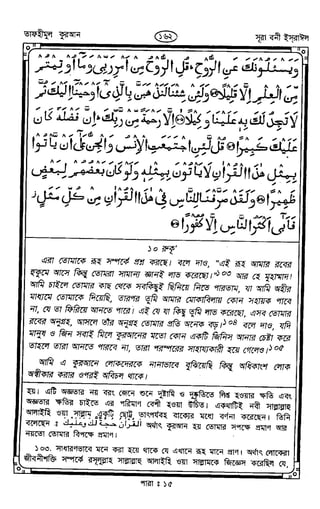 তাফহীমুল কুরআন ১৬২ সূরা বনী ইসরাঈল
وَيَسْـَٔلُونَكَ عَنِ الرُّوحِ ۖ قُلِ الرُّوحُ مِنْ أَمْرِ رَبِّي وَمَا أُوتِيتُمْ
مِّنَ الْعِلْمِ إِلَّا قَلِيلًا ۝ وَلَئِنْ شِئْنَا لَنَذْهَبَنَّ بِالَّذِي أَوْحَيْنَا إِلَيْكَ ثُمَّ
لَا تَجِدُ لَكَ بِهِ عَلَيْنَا وَكِيلًا ۝ إِلَّا رَحْمَةً مِّنْ رَّبِّكَ ۚ إِنَّ فَضْلَهُ كَانَ
عَلَيْكَ كَبِيرًا ۝ قُلْ لَّئِنِ اجْتَمَعَتِ الْإِنْسُ وَالْجِنُّ عَلَىٰ أَنْ يَّأْتُوا
بِمِثْلِ هَٰذَا الْقُرْآنِ لَا يَأْتُونَ بِمِثْلِهِ وَلَوْ كَانَ بَعْضُهُمْ لِبَعْضٍ
ظَهِيرًا ۝ وَلَقَدْ صَرَّفْنَا لِلنَّاسِ فِي هَٰذَا الْقُرْآنِ مِنْ كُلِّ مَثَلٍ ز
فَأَبَىٰ أَكْثَرُ النَّاسِ إِلَّا كُفُورًا ۝
১০ রুকূ'
এরা তোমাকে রূহ সম্পর্কে প্রশ্ন করছে। বলে দাও, "এই রূহ আমার রবের
হুকুমে আসে কিন্তু তোমরা সামান্য জ্ঞানই লাভ করেছো।"১০৩ আর হে মুহাম্মাদ!
আমি চাইলে তোমার কাছ থেকে সবকিছুই ছিনিয়ে নিতে পারতাম, যা আমি অহীর
মাধ্যমে তোমাকে দিয়েছি, তারপর তুমি আমার মোকাবিলায় কোন সহায়ক পাবে
না, যে তা ফিরিয়ে আনতে পারে। এই যে যা কিছু তুমি লাভ করেছো, এসব তোমার
রবের অনুগ্রহ, আসলে তাঁর অনুগ্রহ তোমার প্রতি অনেক বড়।১০৪ বলে দাও, যদি
মানুষ ও জিন সবাই মিলে কুরআনের মতো কোন একটি জিনিস আনার চেষ্টা করে
তাহলে তারা আনতে পারবে না, তারা পরস্পরের সাহায্যকারী হয়ে গেলেও।১০৫
আমি এ কুরআনে লোকদেরকে নানাভাবে বুঝিয়েছি কিন্তু অধিকাংশ লোক
অস্বীকার করার ওপরই অবিচল থাকে।
হয়। এটি অজ্ঞতার নয় বরং জেনে শুনে দুষ্টামি ও দুষ্কৃতিতে লিপ্ত হওয়ার ক্ষতি এবং
অজ্ঞতার ক্ষতির চাইতে এর পরিমাণ বেশী হওয়া উচিত। একথাটিই নবী সাল্লাল্লাহু
আলাইহি ওয়া সাল্লাম একটি ছোট্ট, তাৎপর্যবহ বাক্যের মধ্যে বর্ণনা করেছেন। তিনি
বলেছেন : القرآن حجة لك وعليك অর্থাৎ কুরআন হয় তোমার সপক্ষে প্রমাণ আর
নয়তো তোমার বিপক্ষে প্রমাণ।
১০৩. সাধারণভাবে মনে করা হয়ে থাকে যে এখানে রূহ মানে প্রাণ। অর্থাৎ লোকেরা
জীবনীশক্তি সম্পর্কে রসূলুল্লাহ সাল্লাল্লাহু আলাইহি ওয়া সাল্লামকে জিজ্ঞেস করেছিল যে,
পারা : ১৫